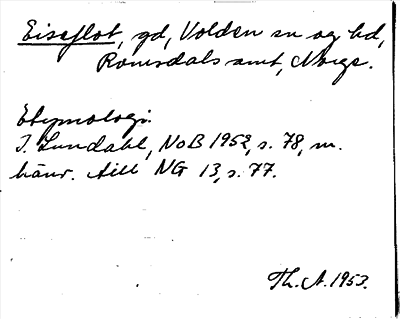 Eiseflot, gd, Volden sn og hd,
Romsdals amt, Norge.
Etymologi:
I. Lundahl, NoB 1952, s. 78, m.
hänv. till NG 13, s. 77.
Th. A. 1953.